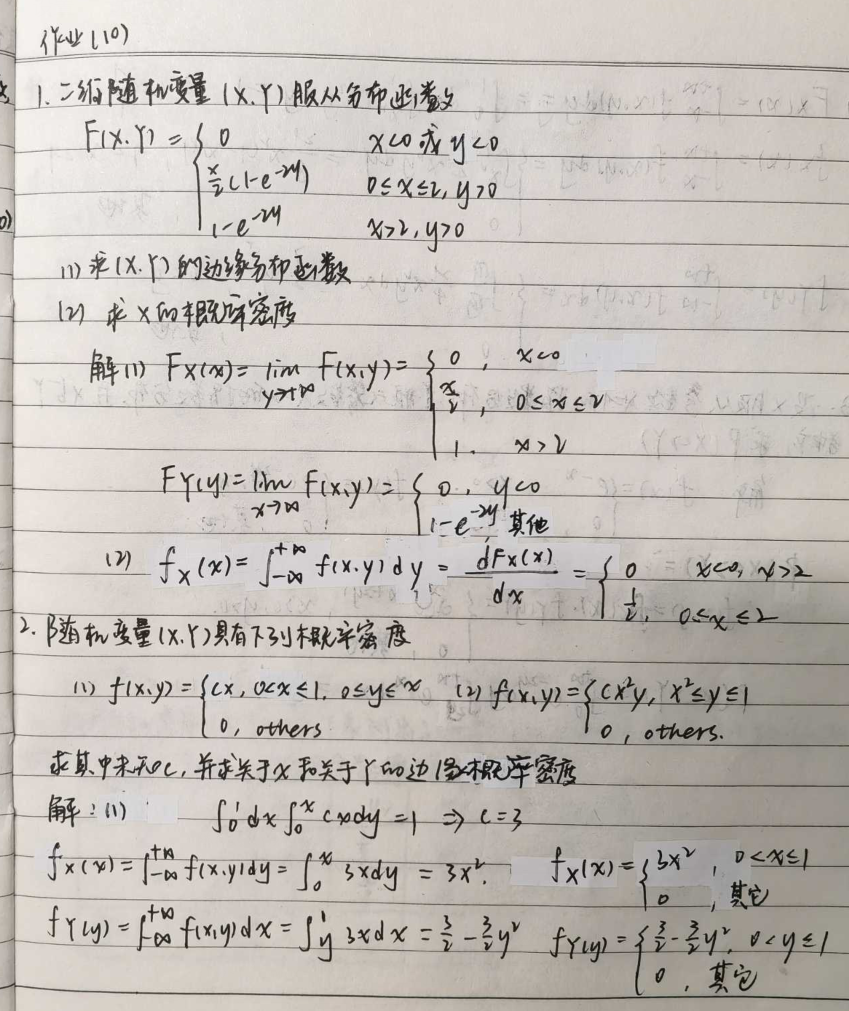 作业(10)
1. 二维随机变量(X.Y)服从分布函数
F(X.Y) = { 0 x<0 或 y<0
x/2(1-e^{-2y}) 0≤x≤2, y>0
1-e^{-2y} x>2, y>0
(1) 求(X.Y)的边缘分布函数
(2) 求X的概率密度
解(1) F_X(x) = lim_{y→+∞} F(x,y) = { 0, x<0
x/2, 0≤x≤2
1. x>2
F_Y(y) = lim_{x→∞} F(x,y) = { 0, y<0
1-e^{-2y}, 其他
(2) f_X(x) = ∫_{-∞}^{+∞} f(x.y)dy = dF_X(x)/dx = { 0 x<0, x>2
1/2, 0≤x≤2
2. 随机变量(X.Y)具有下列概率密度
(1) f(x.y) = { cx, 0<x≤1. 0≤y≤x (2) f(x,y) = { cx²y, x²≤y≤1
0, others 0, others.
求其中未知c, 并求关于X和关于Y的边缘概率密度
解: (1) ∫_0^1 dx ∫_0^x cxdy = 1 ⇒ c=3
f_X(x) = ∫_{-∞}^{+∞} f(x.y)dy = ∫_0^x 3xdy = 3x². f_X(x) = { 3x², 0<x≤1
0, 其它
f_Y(y) = ∫_{-∞}^{+∞} f(x,y)dx = ∫_y^1 3xdx = 3/2 - 3/2 y² f_Y(y) = { 3/2 - 3/2 y², 0<y≤1
0, 其它